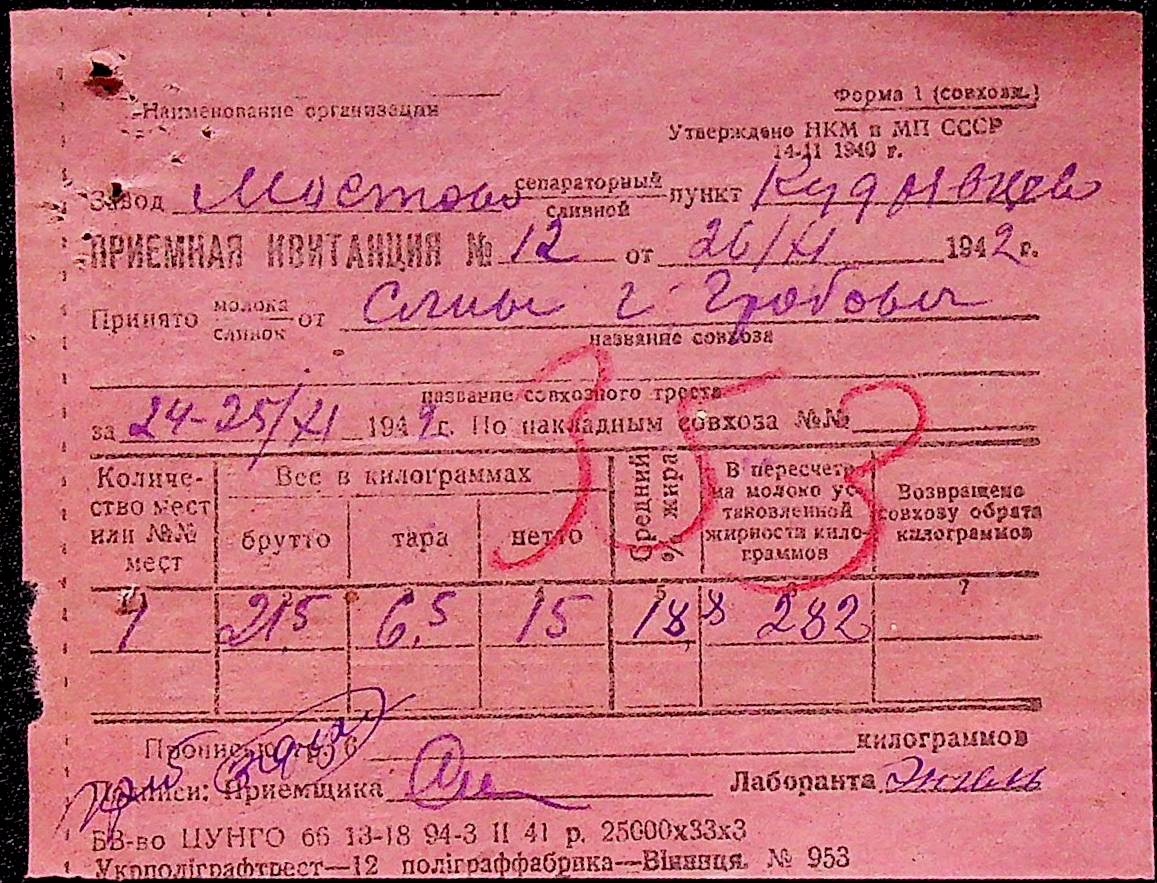 Наименование организации
Форма 1 (совхозн.)
Утверждено НКМ и МП СССР
14-II 1940 г.
Завод Мостово сепараторный сливной пункт
ПРИЕМНАЯ КВИТАНЦИЯ № 12 от 26/XI 1942 г.
Принято молока сливок от
название совхоза
название совхозного треста
за 24-25/XI 1942 г. По накладным совхоза №№
353
Количество мест или №№ мест
Все в килограммах
брутто
тара
нетто
Средний % жира
В пересчете на молоко установленной жирности килограммов
Возвращено совхозу обрата килограммов
1 2 3 4 5 6 7
1 215 6,5 15 18,8 282
Прописью килограммов
Подписи: Приемщика Лаборанта
БВ-во ЦУНГО 66 13-18 94-3 II 41 р. 25000х33х3
Укрполіграфтрест—12 поліграффабрика—Вінниця. № 953